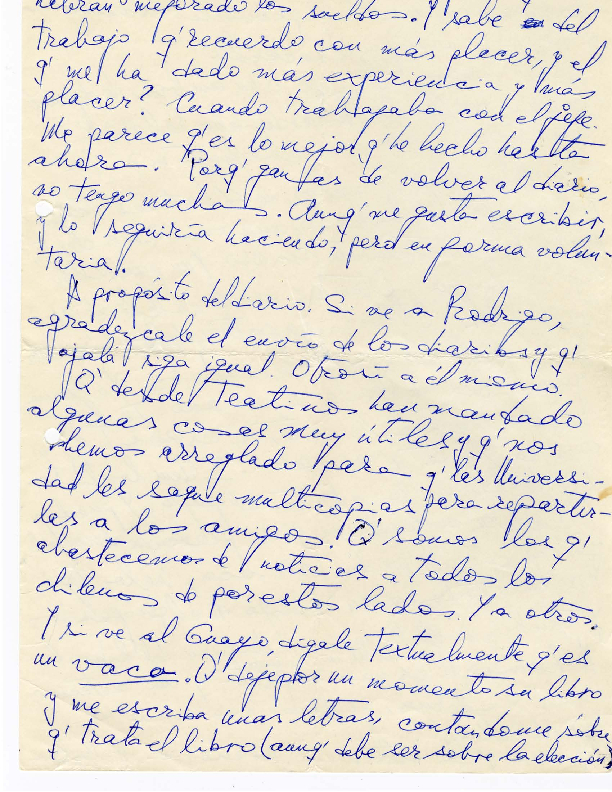 mejorado los sueldos. Y sabe del
trabajo q' recuerdo con más placer, y el
q' me ha dado más experiencia y más
placer? Cuando trabajaba con el jefe.
Me parece q' es lo mejor q' he hecho hasta
ahora. Porq' ganas de volver al diario,
no tengo muchas. Aunq' me gusta escribir,
y lo seguiría haciendo, pero en forma volun-
taria.
A propósito del diario. Si ve a Rodrigo,
agradezcale el envío de los diarios y q'
ojalá siga igual. Otrosí a él mismo.
Q' desde Teatinos han mandado
algunas cosas muy útiles y q' nos
hemos arreglado para q' las Universi-
dad les saque multicopias para repartir-
las a los amigos. Q' somos los q'
abastecemos de noticias a todos los
chilenos de por estos lados. Y a otros.
Y si ve al Guayo, digale textualmente q' es
un vaca. Q' deje por un momento su libro
y me escriba unas letras, contandome sobre
q' trata el libro (aunq' debe ser sobre la elección)